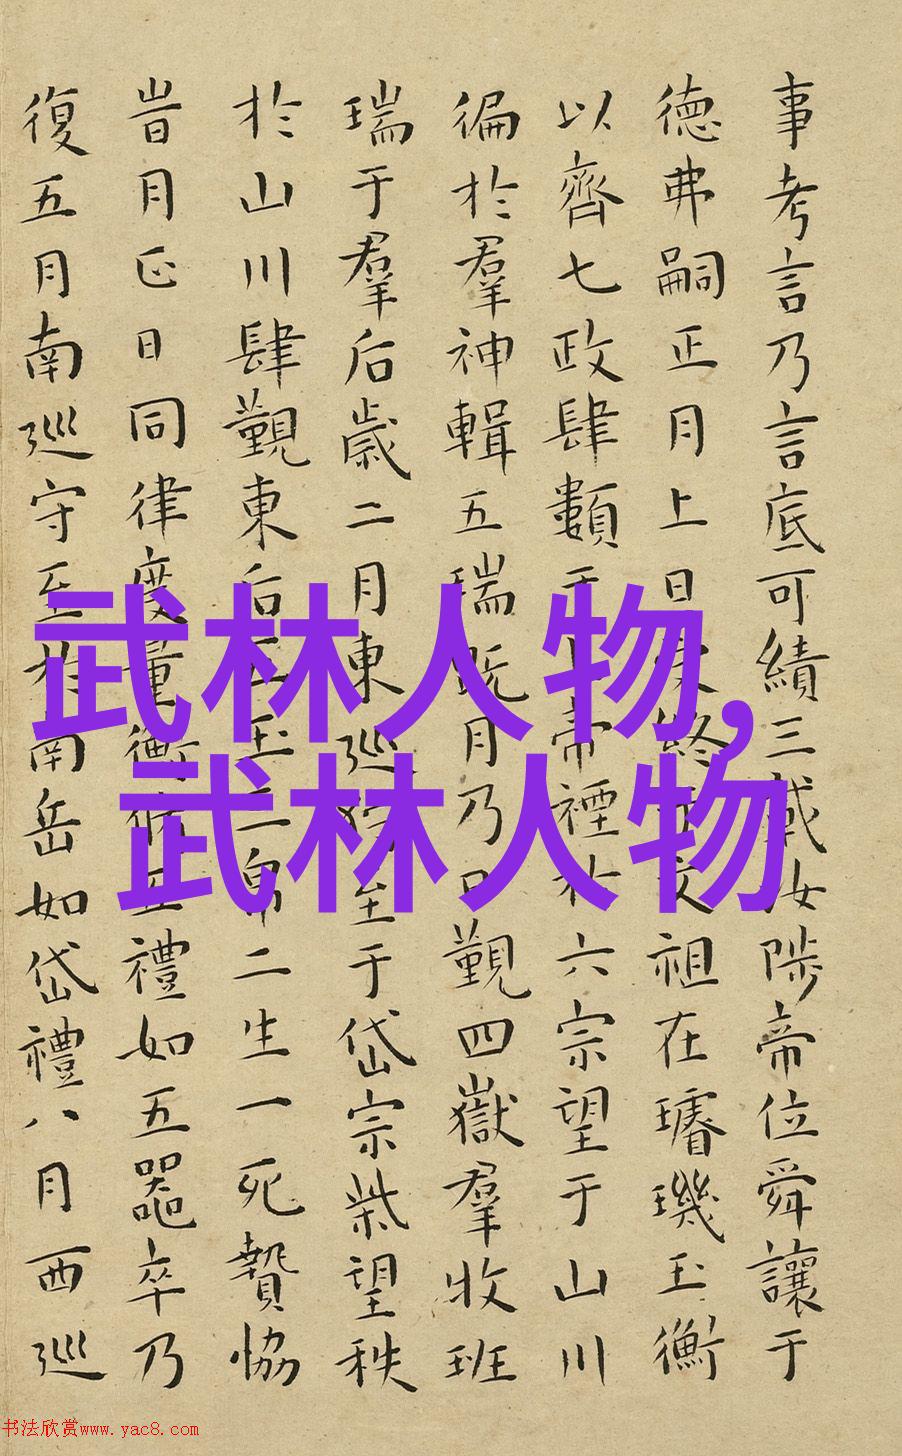 事考言乃言底可績三載汝陟帝位舜讓于
德弗嗣正月上日受終于文祖在璿璣玉衡
以齊七政肆類于上帝禋於六宗望于山川
徧於羣神輯五瑞既月乃日覲四嶽羣牧班
瑞于羣后歲二月東巡狩至于岱宗柴望秩
於山川肆覲東后五玉三帛二生一死贄協
旹月正日同律度量衡脩五禮如五器卒乃
復五月南巡守至於南岳如岱禮八月西巡
武林人物,
武林人物
书法欣赏www.yac8.com